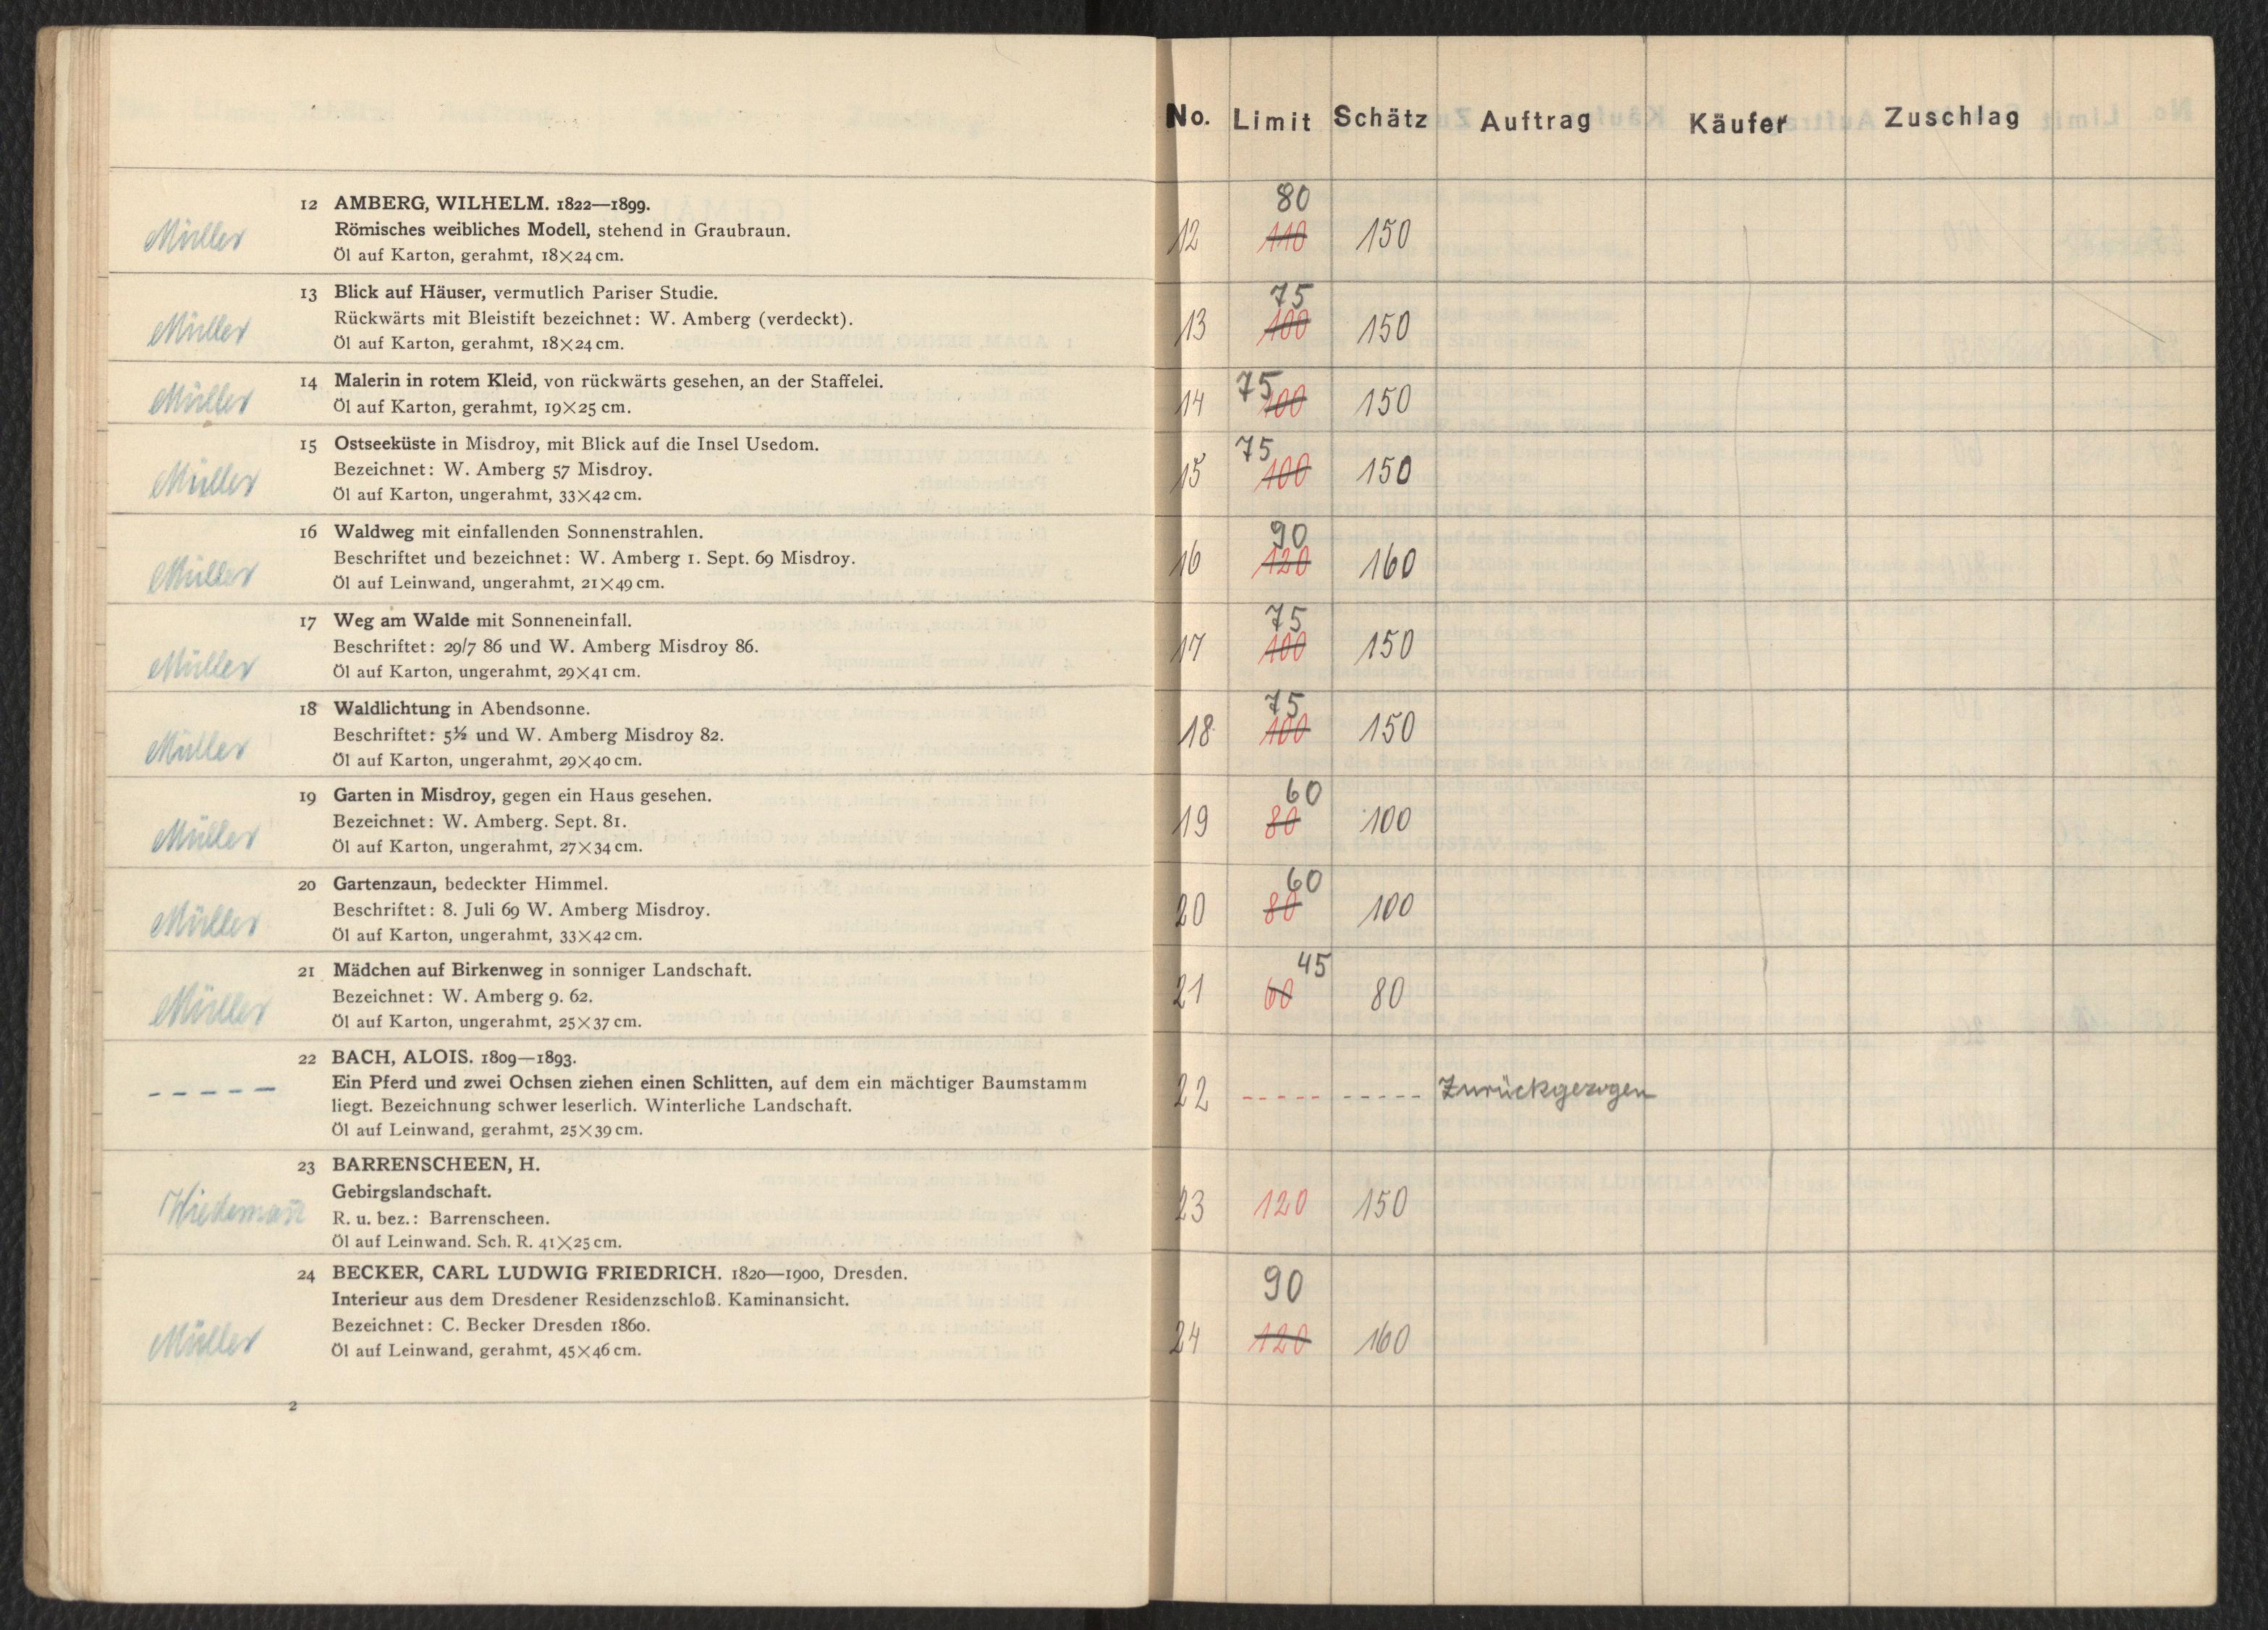 12 AMBERG, WILHELM. 1822—1899.
Müller
Römisches weibliches Modell, stehend in Graubraun.
Öl auf Karton, gerahmt, 18×24 cm.
13 Blick auf Häuser, vermutlich Pariser Studie.
Müller
Rückwärts mit Bleistift bezeichnet: W. Amberg (verdeckt).
Öl auf Karton, gerahmt, 18×24 cm.
14 Malerin in rotem Kleid, von rückwärts gesehen, an der Staffelei.
Müller
Öl auf Karton, gerahmt, 19×25 cm.
15 Ostseeküste in Misdroy, mit Blick auf die Insel Usedom.
Bezeichnet: W. Amberg 57 Misdroy.
Müller
Öl auf Karton, ungerahmt, 33×42 cm.
16 Waldweg mit einfallenden Sonnenstrahlen.
Beschriftet und bezeichnet: W. Amberg 1. Sept. 69 Misdroy.
Müller
Öl auf Leinwand, ungerahmt, 21×49 cm.
17 Weg am Walde mit Sonneneinfall.
Beschriftet: 29/7 86 und W. Amberg Misdroy 86.
Müller
Öl auf Karton, ungerahmt, 29×41 cm.
18 Waldlichtung in Abendsonne.
Beschriftet: 5½ und W. Amberg Misdroy 82.
Müller
Öl auf Karton, ungerahmt, 29×40 cm.
19 Garten in Misdroy, gegen ein Haus gesehen.
Bezeichnet: W. Amberg. Sept. 81.
Müller
Öl auf Karton, ungerahmt, 27×34 cm.
20 Gartenzaun, bedeckter Himmel.
Beschriftet: 8. Juli 69 W. Amberg Misdroy.
Müller
Öl auf Karton, ungerahmt, 33×42 cm.
21 Mädchen auf Birkenweg in sonniger Landschaft.
Bezeichnet: W. Amberg 9. 62.
Müller
Öl auf Karton, ungerahmt, 25×37 cm.
22 BACH, ALOIS. 1809—1893.
– – – – –
Ein Pferd und zwei Ochsen ziehen einen Schlitten, auf dem ein mächtiger Baumstamm
liegt. Bezeichnung schwer leserlich. Winterliche Landschaft.
Öl auf Leinwand, gerahmt, 25×39 cm.
23 BARRENSCHEEN, H.
Gebirgslandschaft.
Wiedemañ
R. u. bez.: Barrenscheen.
Öl auf Leinwand. Sch. R. 41×25 cm.
24 BECKER, CARL LUDWIG FRIEDRICH. 1820—1900, Dresden.
Interieur aus dem Dresdener Residenzschloß. Kaminansicht.
Bezeichnet: C. Becker Dresden 1860.
Müller
Öl auf Leinwand, gerahmt, 45×46 cm.
2
No. Limit Schätz Auftrag Käufer Zuschlag
80
12 110 150
75
13 100 150
75
14 100 150
75
15 100 150
90
16 120 160
75
17 100 150
75
18 100 150
60
19 80 100
60
20 80 100
45
21 60 80
22 ----- ----- Zurückgezogen
23 120 150
90
24 120 160